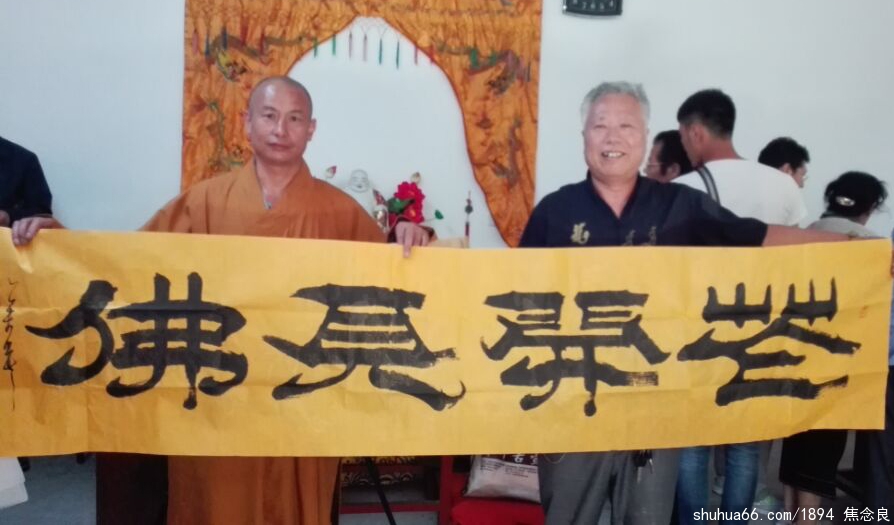 花開見佛
shuhua66.com/1894 焦念良